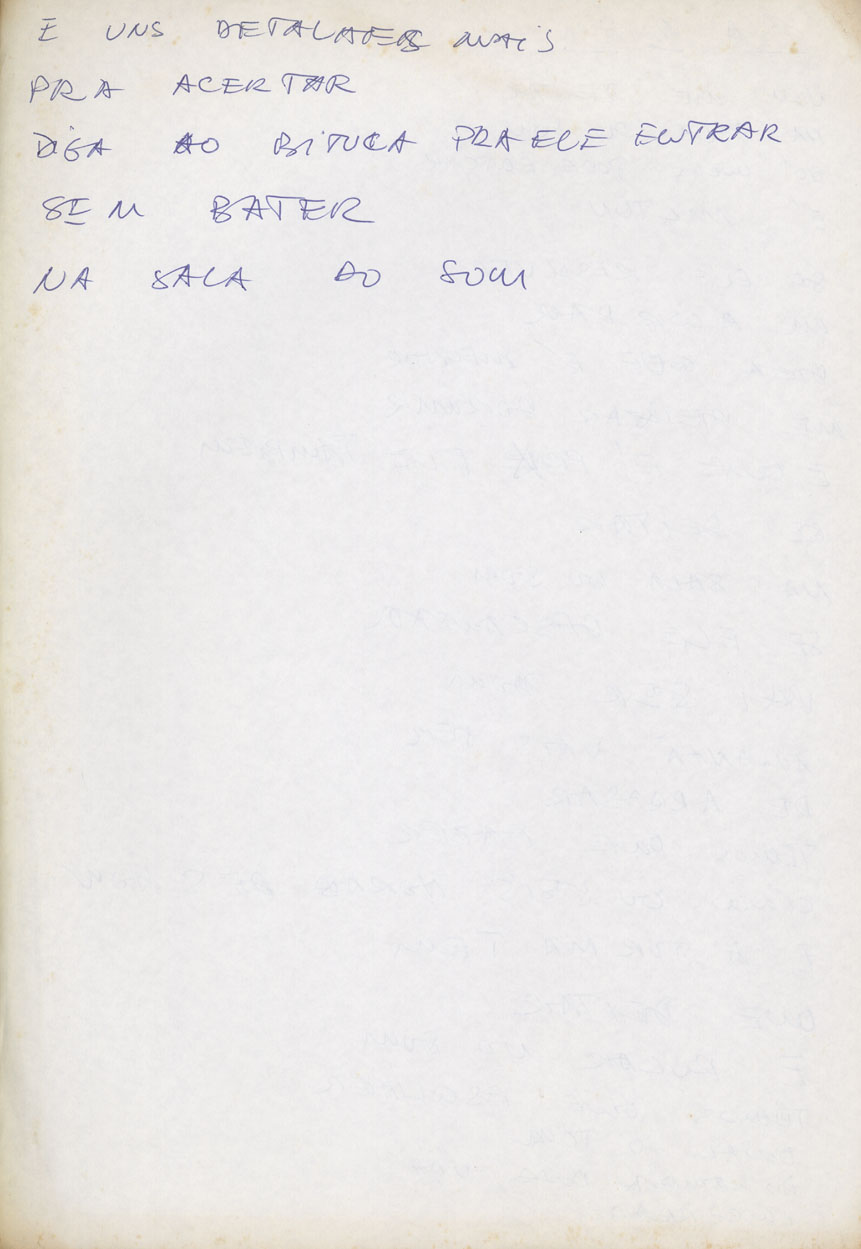 E UNS DETALHES MAIS
PRA ACERTAR
DIGA AO BITUCA PRA ELE ENTRAR
SEM BATER
NA SALA DO SOM